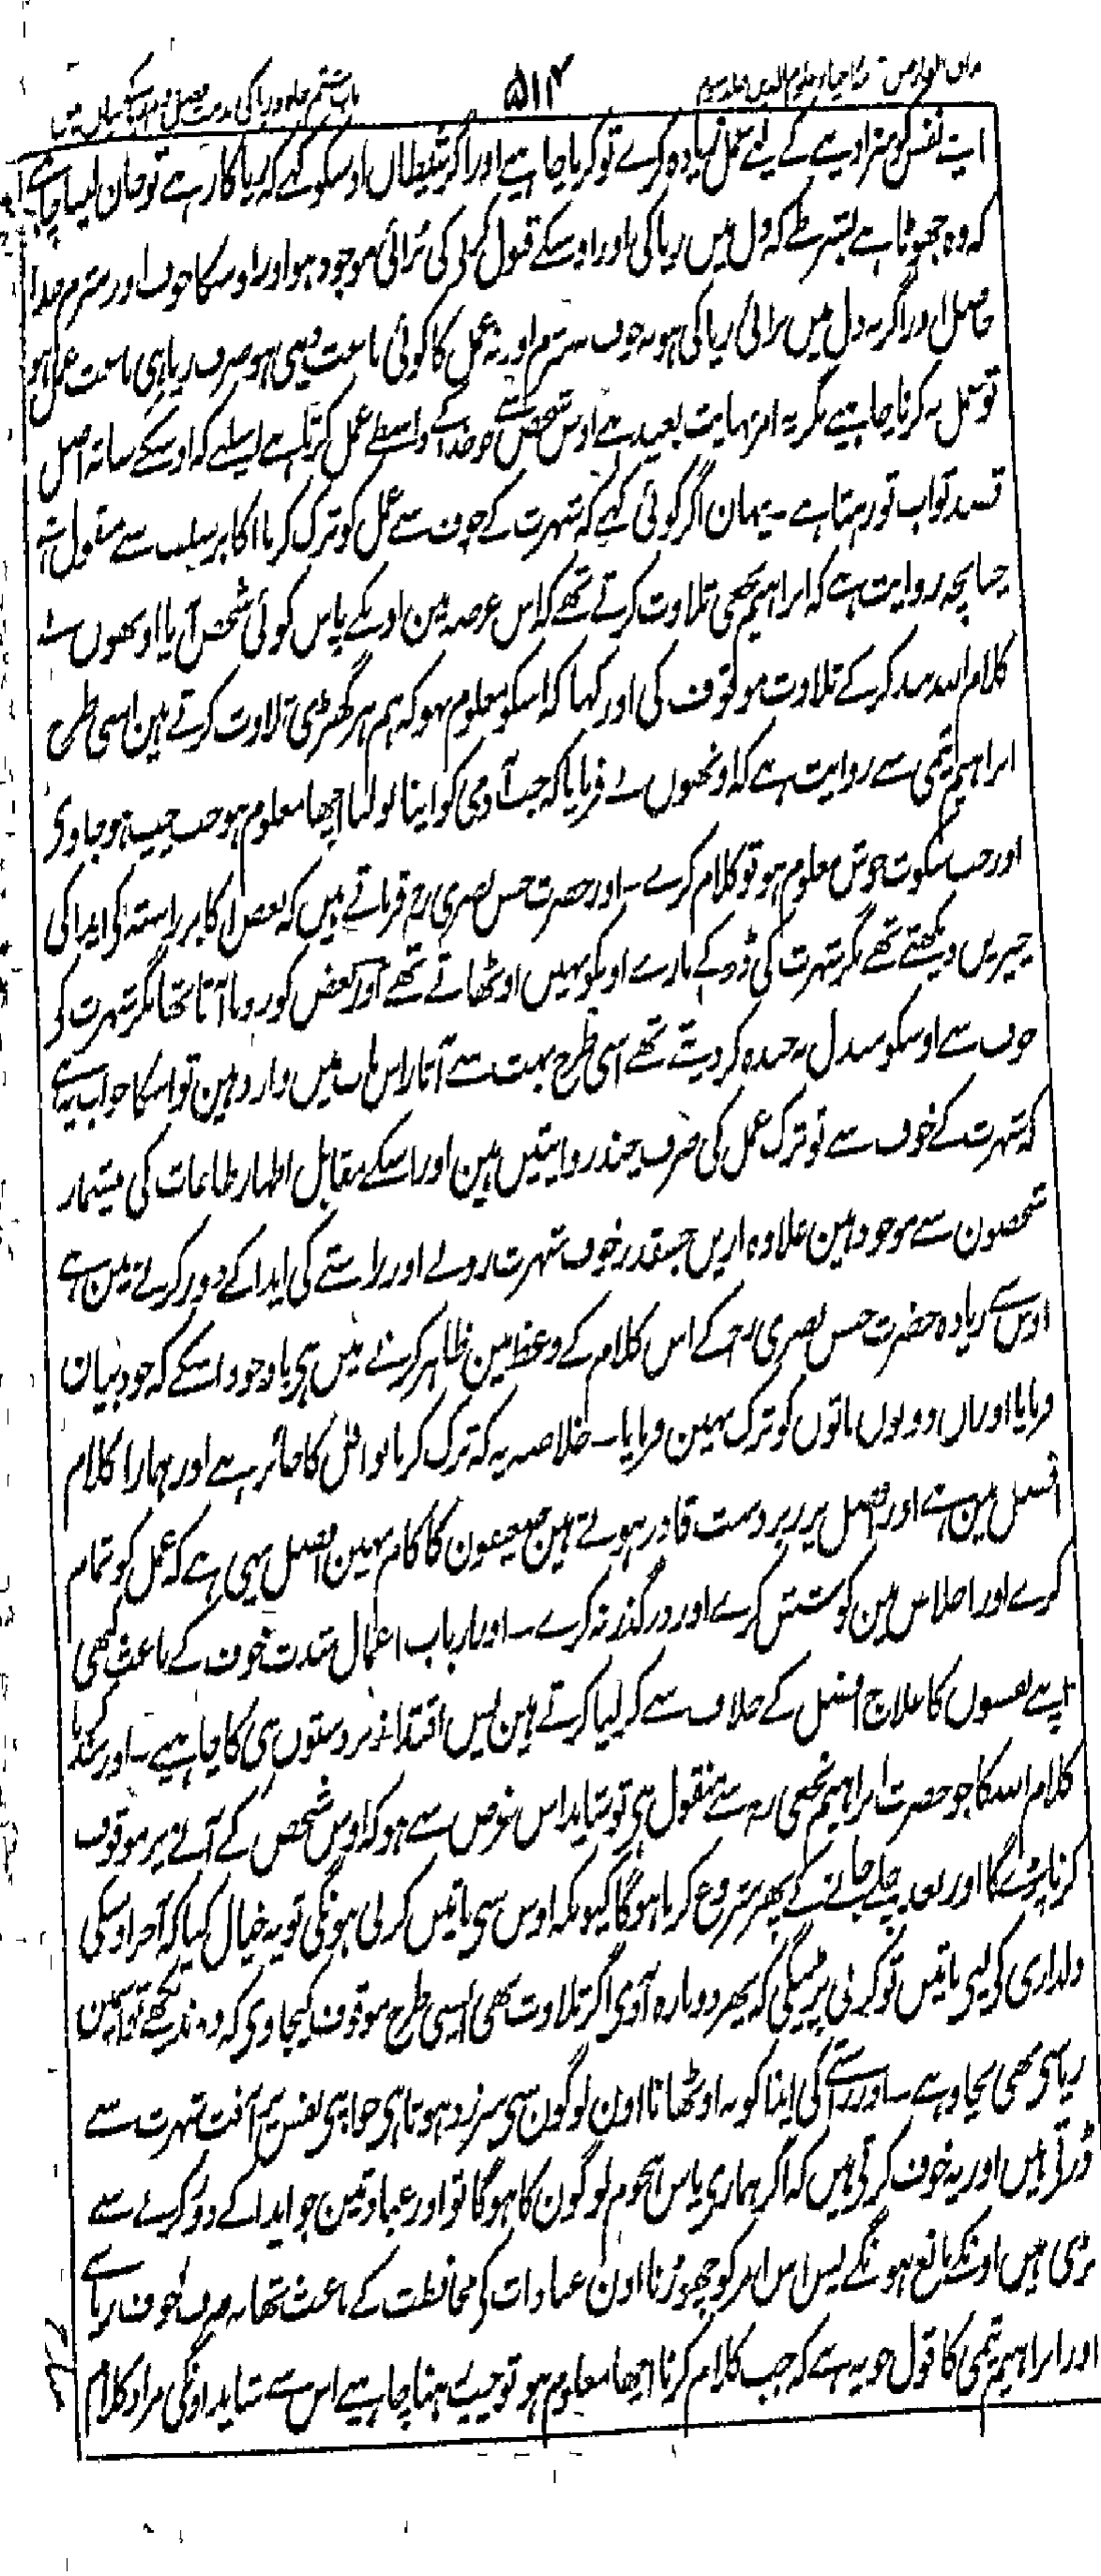 ۵۱۴
اپنے نفس کو سزا دینے کے لیے عمل زیادہ کرے تو کرنا چاہیے اور اگر شیطان اوسکو کہے کہ ریاکار ہے تو جان لینا چاہیے
کہ وہ جھوٹا ہے بشرطے کہ دل میں ریا کی اور اوسکے قبول کرنے کی برائی موجود ہو اور اوسکا خوف اور شرم خدا
حاصل اور اگر نہ دل میں برائی ریا کی ہو نہ خوف نہ شرم اور نہ عمل کا کوئی باعث دینی ہو صرف ریا ہی باعث عمل ہو
تو عمل نہ کرنا چاہیے مگر یہ امر نہایت بعید ہے اوس شخص سے جو خدا کے واسطے عمل کرتا ہے اسلیے کہ اوسکے ساتھ اصل
قصد ثواب تو رہتا ہے ۔ یہان اگر کوئی کہے کہ شہرت کے خوف سے عمل کو ترک کرنا اکابر سلف سے منقول ہے
چنانچہ روایت ہے کہ ابراہیم نخعی تلاوت کرتے تھے کہ اس عرصہ مین اونکے پاس کوئی شخص آیا اونھوں نے
کلام اللہ بند کرکے تلاوت موقوف کی اور کہا کہ اسکو معلوم نہو کہ ہم ہر گھڑی تلاوت کرتے ہین اسی طرح
ابراہیم تیمی سے روایت ہے کہ اونھوں نے فرمایا کہ جب آدمی کو اپنا بولنا اچھا معلوم ہو جب چپ ہو جاوے
اور جب سکوت خوش معلوم ہو تو کلام کرے ۔ اور حضرت حسن بصری رح فرماتے ہیں کہ بعض اکابر راستہ کی ایذا کی
چیزیں دیکھتے تھے مگر شہرت کی ڈر کے مارے اونکو نہیں اوٹھاتے تھے اور بعض کو رونا آتا تھا مگر شہرت کے
خوف سے اوسکو مبدل بہ خندہ کر دیتے تھے اسی طرح بہت سے آثار اس باب میں وارد ہین تو اسکا جواب یہ ہے
کہ شہرت کے خوف سے تو ترک عمل کی صرف چند روایتیں ہین اور اسکے مقابل اظہار طاعات کی بیشمار
شخصون سے موجود ہین علاوہ ازیں جسقدر خوف شہرت رونے اور راستے کی ایذا کے دور کرنے مین ہے
اوس سے زیادہ حضرت حسن بصری رح کے اس کلام کے وعظ مین ظاہر کرنے میں ہی باوجود اسکے کہ خود بیان
فرمایا اور ان دونوں باتوں کو ترک نہین فرمایا ۔ خلاصہ یہ کہ ترک کرنا نوافل کا جائز ہے اور ہمارا کلام
افضل مین ہے اور افضل پر زبردست قادر ہوتے ہین ضعیفون کا کام نہین افضل یہی ہے کہ عمل کو تمام
کرے اور اخلاص مین کوشش کرے اور درگذر نہ کرے ۔ اور ارباب اعمال شدت خوف کے باعث کبھی
اپنے نفسوں کا علاج افضل کے خلاف سے کر لیا کرتے ہین پس اقتدا زبردستوں ہی کا چاہیے ۔ اور بند کرنا
کلام اللہ کا جو حضرت ابراہیم نخعی رہ سے منقول ہی تو شاید اس غرض سے ہو کہ اوس شخص کے آنے پر موقوف
کرنا پڑے گا اور بعد چلے جانے کے پھر شروع کرنا ہوگا کیونکہ اوس سی باتیں کرنی ہونگی تو یہ خیال کیا کہ آخر اوسکی
دلداری کے لیے باتیں تو کرنی پڑینگی کہ پھر دوبارہ آوے اگر تلاوت بھی ایسی طرح موقوف کیجاوے کہ وہ نہ دیکھے تو اسمین
ریا سی بھی بچاو ہے ۔ اور راستے کی ایذا کو نہ اوٹھانا اون لوگون سی سرزد ہوتا ہی جو اپنی نفس پر آفت شہرت سے
ڈرتے ہیں اور یہ خوف کرتے ہیں کہ اگر ہماری پاس ہجوم لوگون کا ہوگا تو اور عبادتین جو ایذا کے دور کرنے سے
بڑی ہیں اونکے مانع ہونگے پس اس امر کو چھوڑنا اون عبادات کی محافظت کے باعث تھا نہ صرف خوف ریا سے
اور ابراہیم تیمی کا قول جو یہ ہے کہ جب کلام کرنا اچھا معلوم ہو تو چپ رہنا چاہیے اس سے شاید اونکی مراد کلام